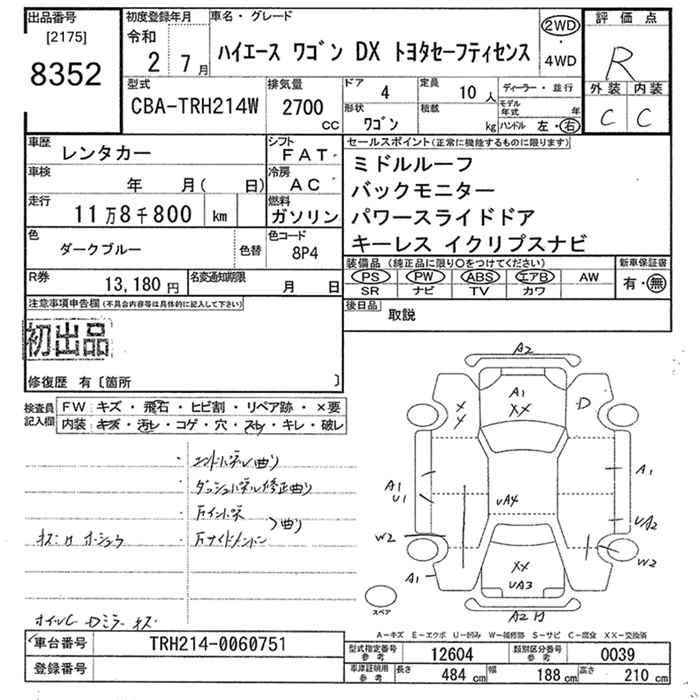 出品番号
[2175]
8352
初度登録年月
令和
2 7月
車名・グレード
ハイエース ワゴン DX トヨタセーフティセンス
2WD
・
4WD
評価点
R
外装 内装
C C
型式
CBA-TRH214W
排気量
2700
cc
ドア 4
定員 10人
形状
ワゴン
積載
kg
ディーラー・並行
モデル年式 年
ハンドル 左・右
車歴
レンタカー
シフト
FAT
車検
年 月( 日)
冷房
AC
走行
11万8千800 km
燃料
ガソリン
色
ダークブルー
色替
色コード
8P4
R券
13,180円
名変通知期限
月 日
セールスポイント(正常に機能するものに限ります)
ミドルルーフ
バックモニター
パワースライドドア
キーレス イクリプスナビ
装備品(純正品に限り○をつけてください)
PS PW ABS エアB AW
SR ナビ TV カワ
新車保証書
有・無
後日品
取説
注意事項申告欄(不具合内容等は具体的に記入して下さい)
初出品
修復歴 有〔箇所 〕
検査員
記入欄
FW キズ・飛石・ヒビ割・リペア跡・×要
内装 キズ・汚レ・コゲ・穴・スレ・キレ・破レ
曲り
修正曲り
曲り
キズ
A2
A1
XX
D
A1
U1
A1
UA4
UA2
W2
W2
A1
XX
UA3
A2
スペア
A-キズ E-エクボ U-凹み W-補修跡 S-サビ C-腐食 XX-交換済
車台番号
TRH214-0060751
登録番号
型式指定番号
参考
12604
類別区分番号
参考
0039
車庫証明用
参考
長さ 484 cm 幅 188 cm 高さ 210 cm